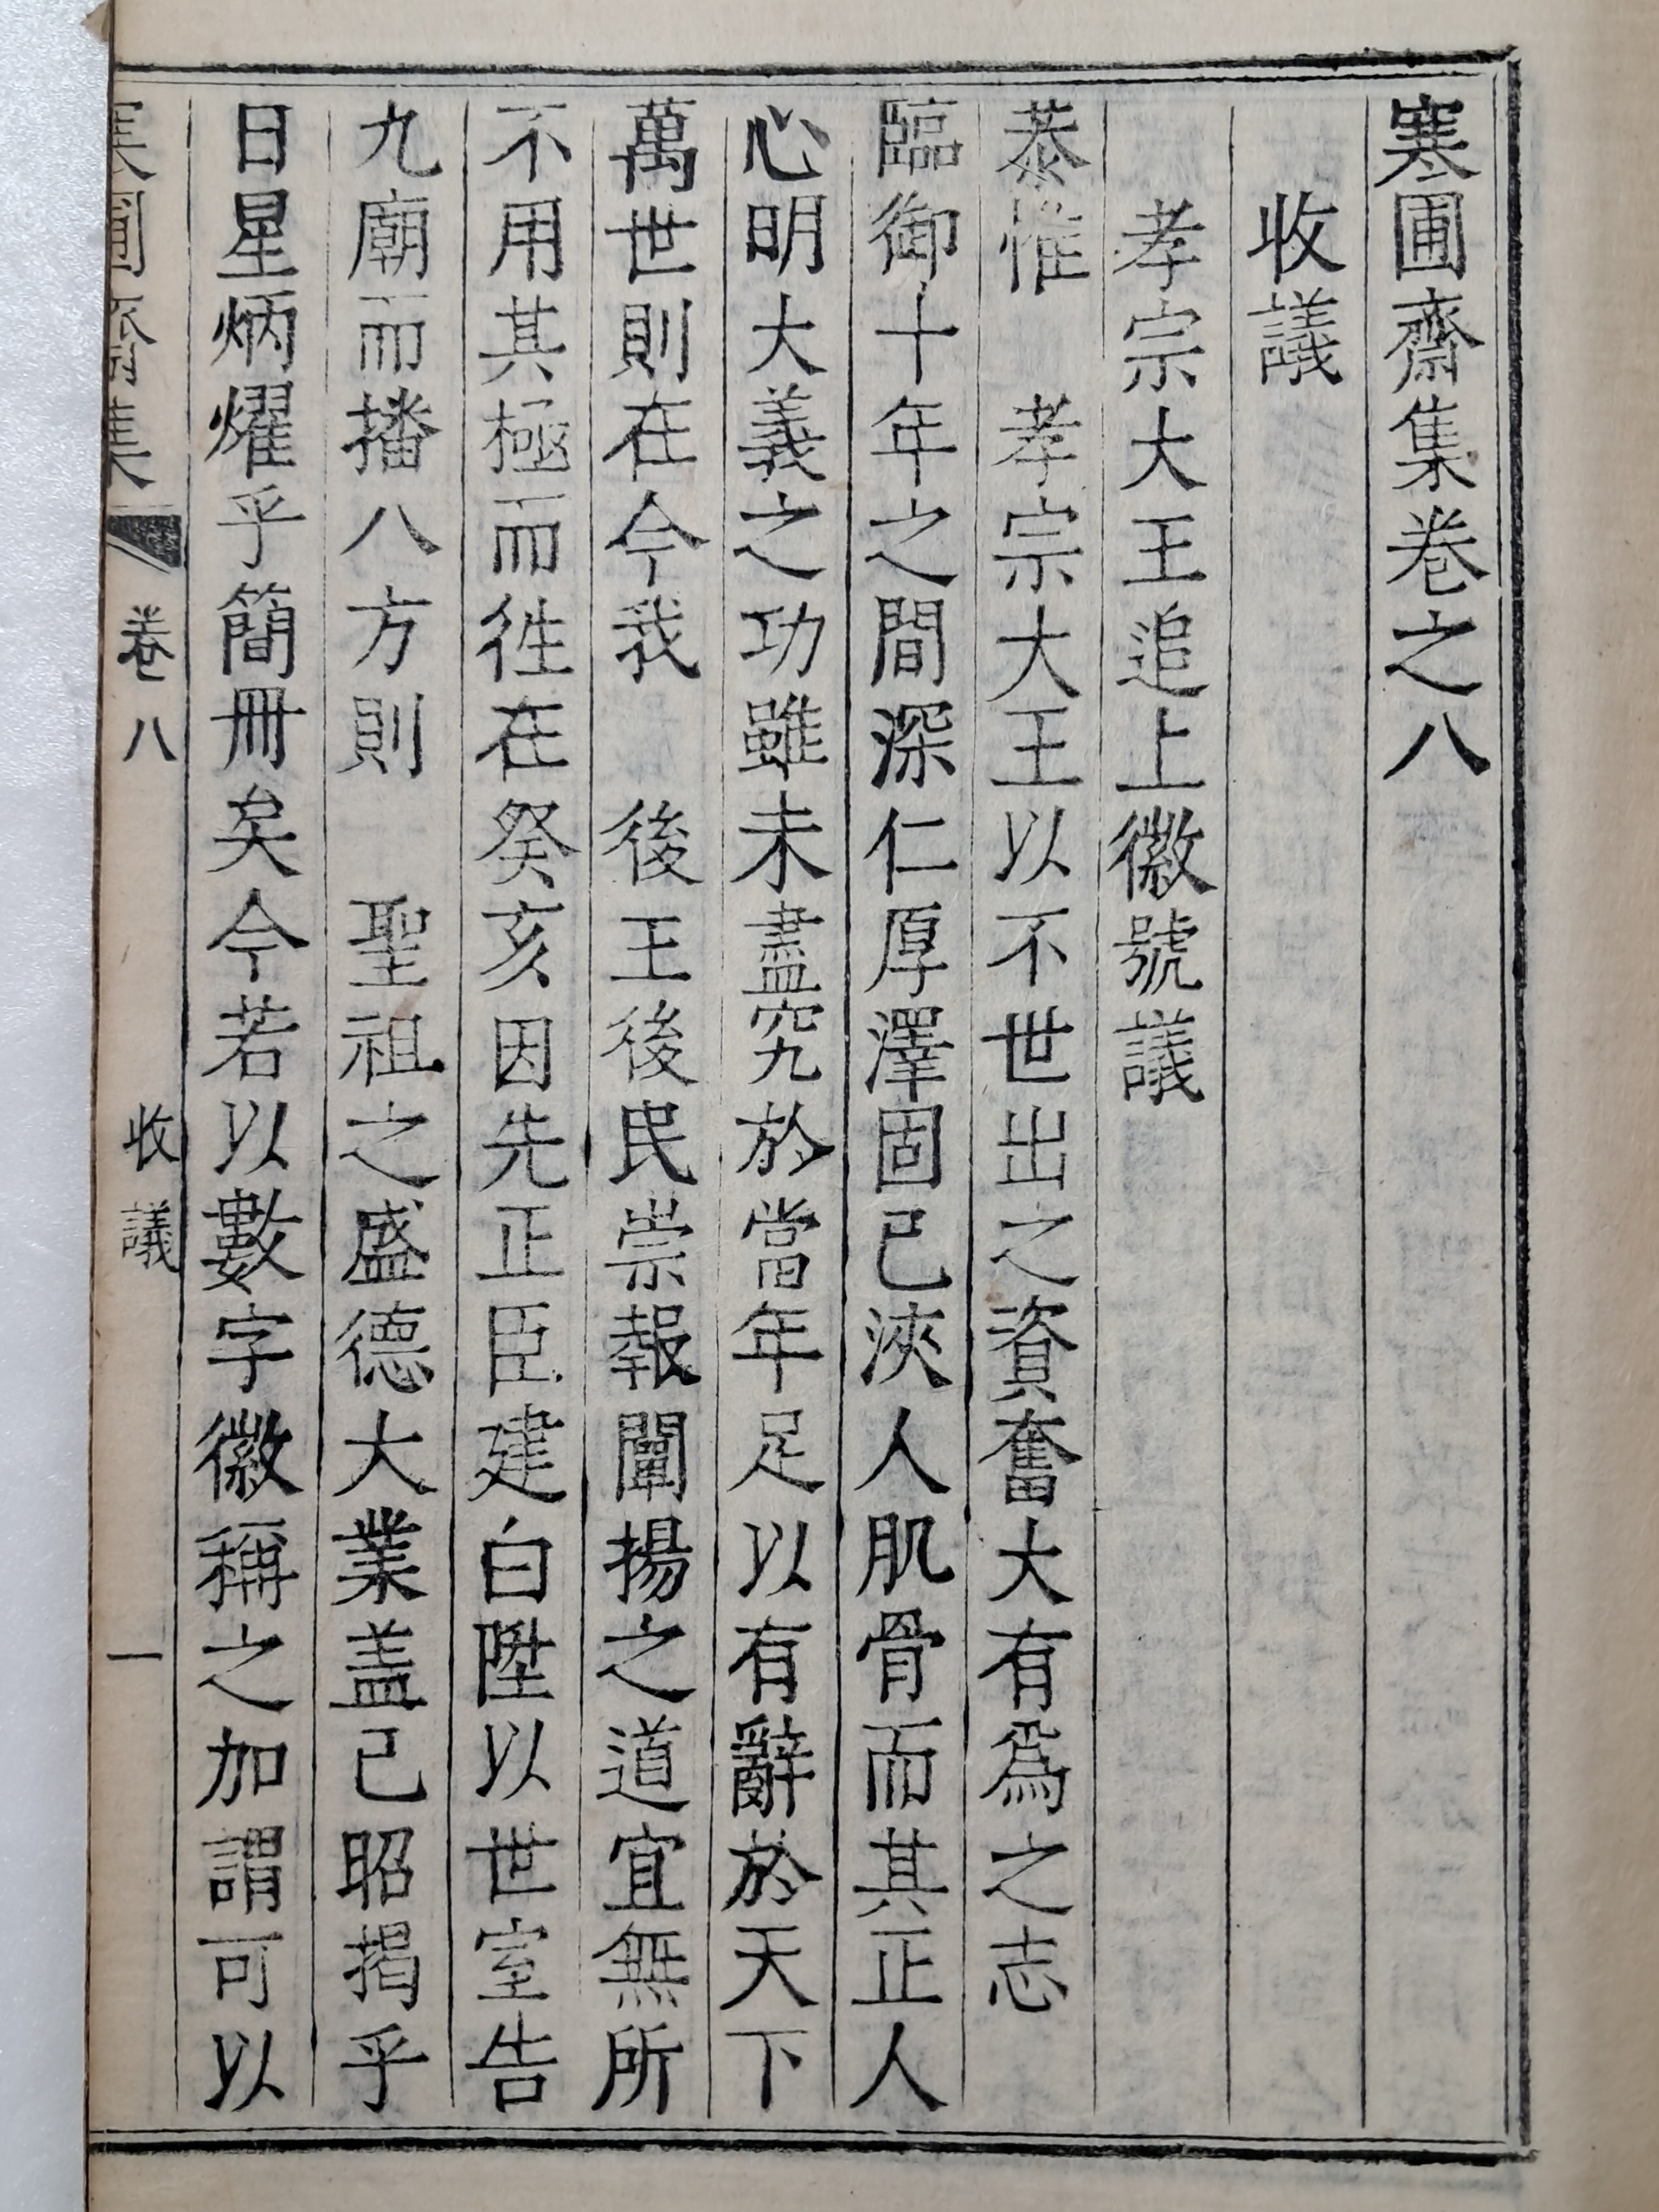 寒圃齋集卷之八
收議
孝宗大王追上徽號議
恭惟　孝宗大王以不世出之資奮大有爲之志
臨御十年之間深仁厚澤固已浹人肌骨而其正人
心明大義之功雖未盡究於當年足以有辭於天下
萬世則在今我　後王後民崇報闡揚之道宜無所
不用其極而徃在癸亥因先正臣建白陞以世室告
九廟而播八方則　聖祖之盛德大業盖已昭揭乎
日星炳燿乎簡冊矣今若以數字徽稱之加謂可以
寒圃齋集　卷八　收議　一